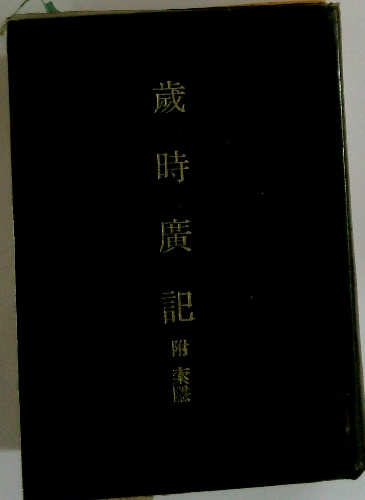 歲時廣記
附索引